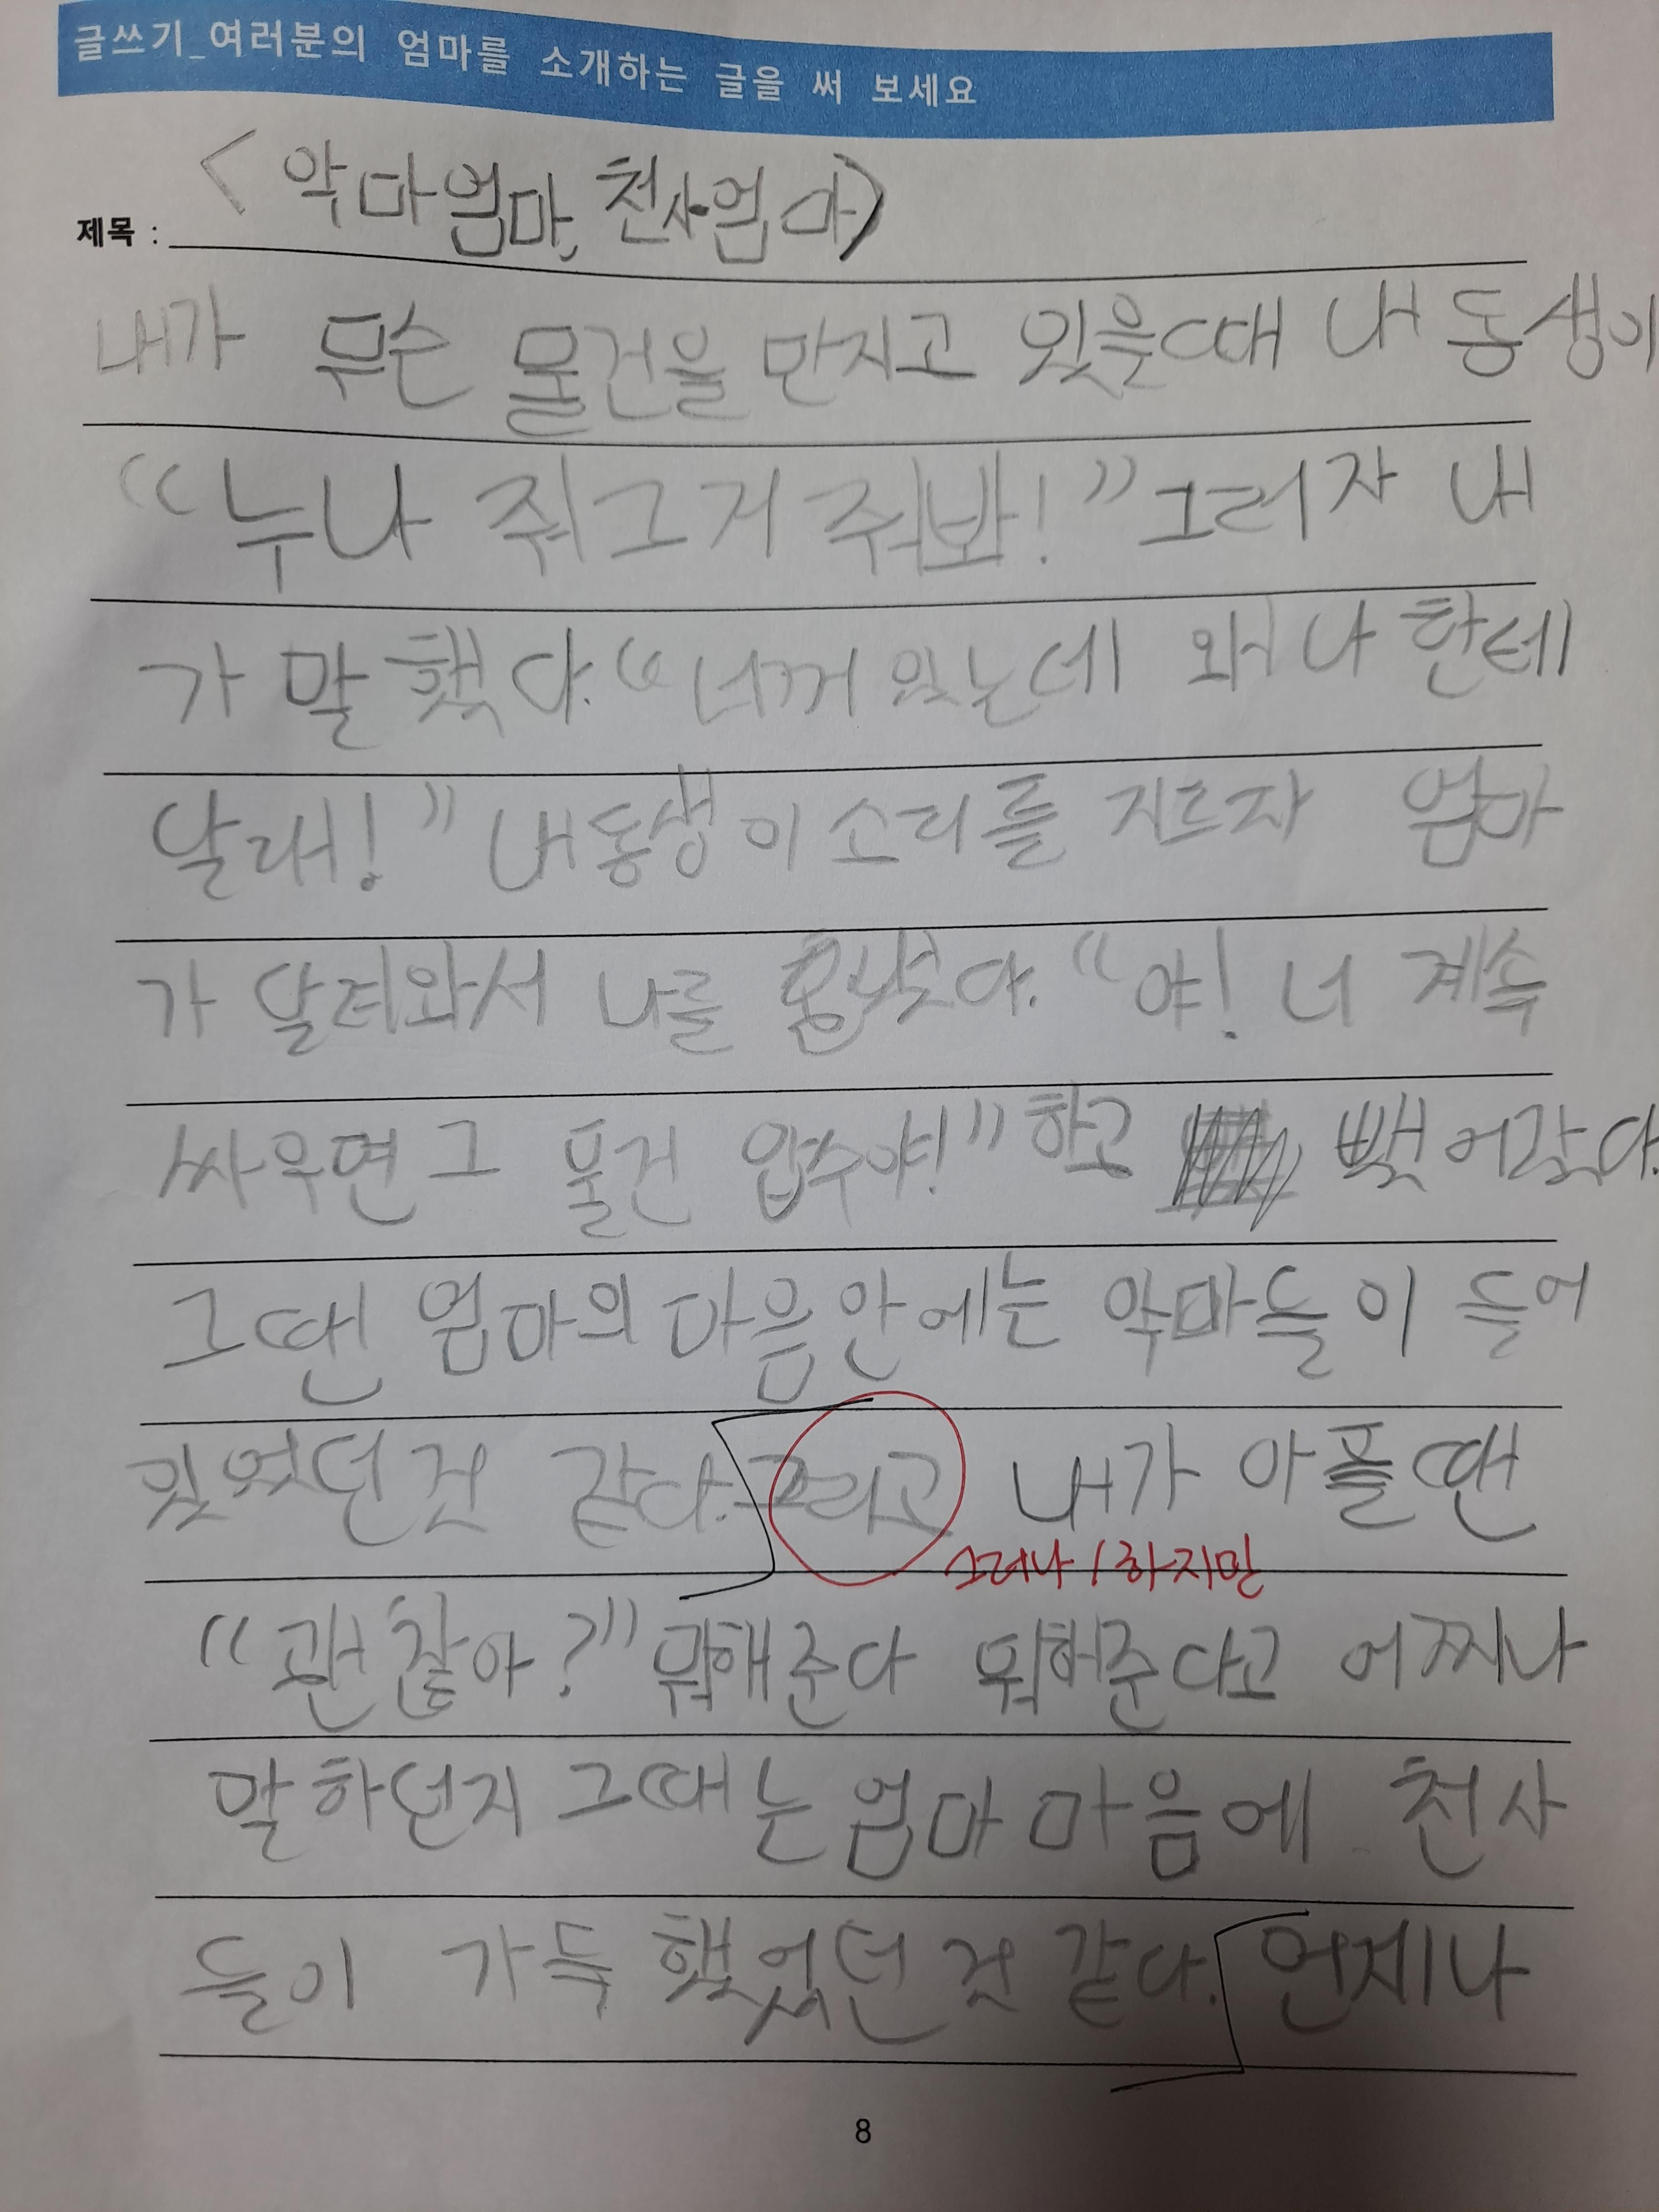 글쓰기_여러분의 엄마를 소개하는 글을 써 보세요
제목 : <악마엄마, 천사엄마>
내가 무슨 물건을 만지고 있을때 내 동생이
“누나 줘 그거 줘봐!” 그러자 내
가 말했다. “너꺼 있는데 왜 나한테
달래!” 내 동생이 소리를 지르자 엄마
가 달려와서 나를 혼냈다. “야! 너 계속
싸우면 그 물건 압수야!” 하고 뺏어갔다.
그땐 엄마의 마음안에는 악마들이 들어
있었던것 같다. 그리고 내가 아플땐
그러나 / 하지만
“괜찮아?” 뭐해준다 뭐해준다고 어찌나
말하던지 그때는 엄마 마음에 천사
들이 가득했었던것 같다. 언제나
8